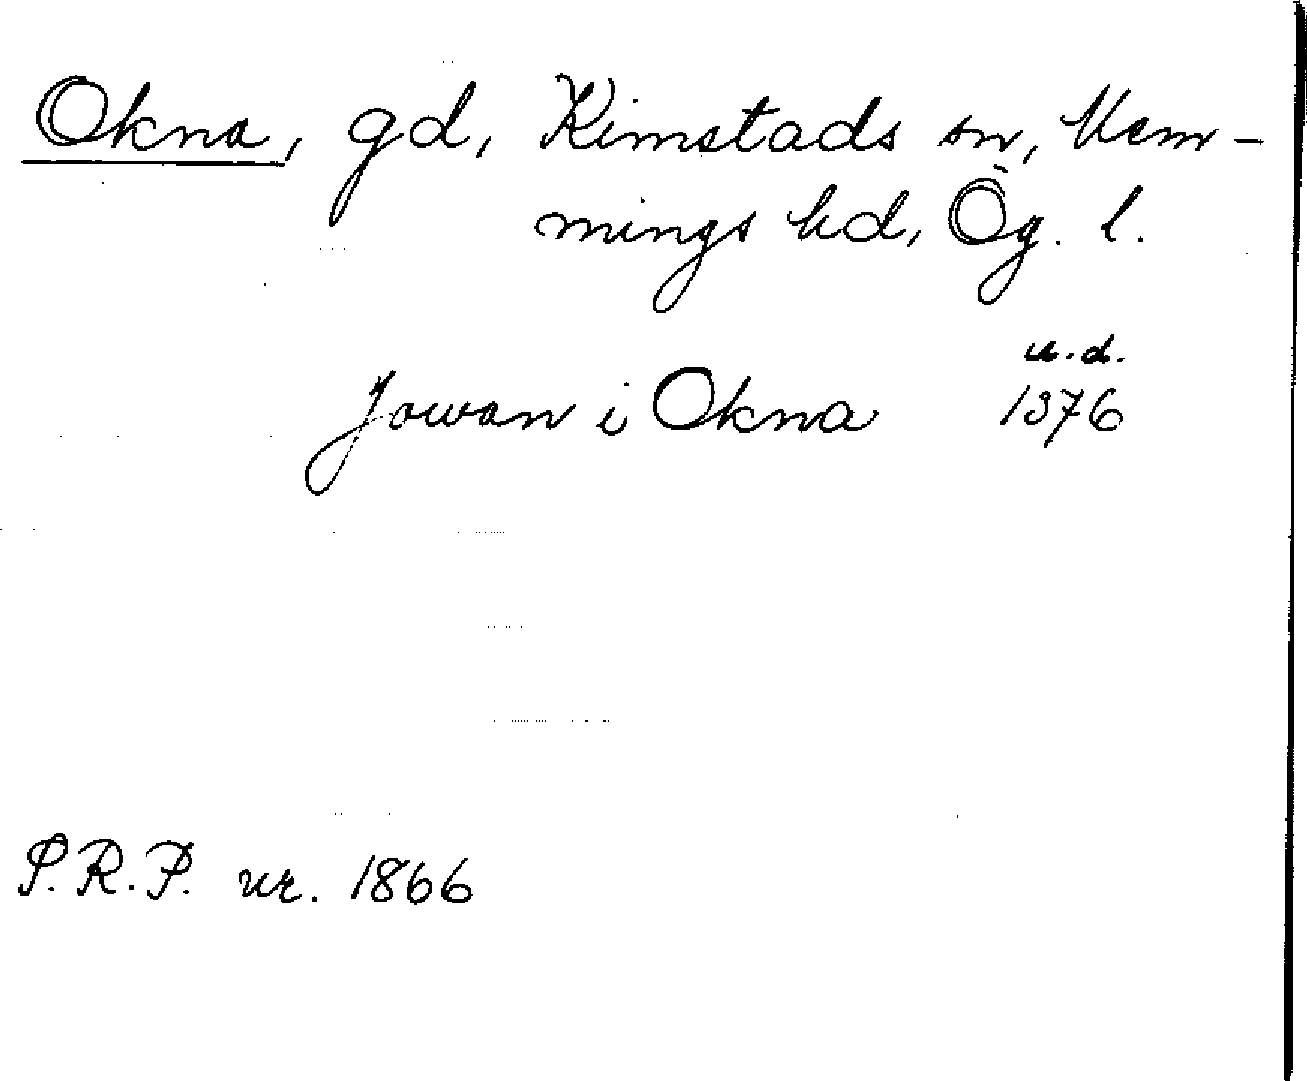 Okna, gd, Kimstads sn, Mem-
mings hd, Ög. l.
u.d.
Jowan i Okna 1376
S.R.P. nr. 1866